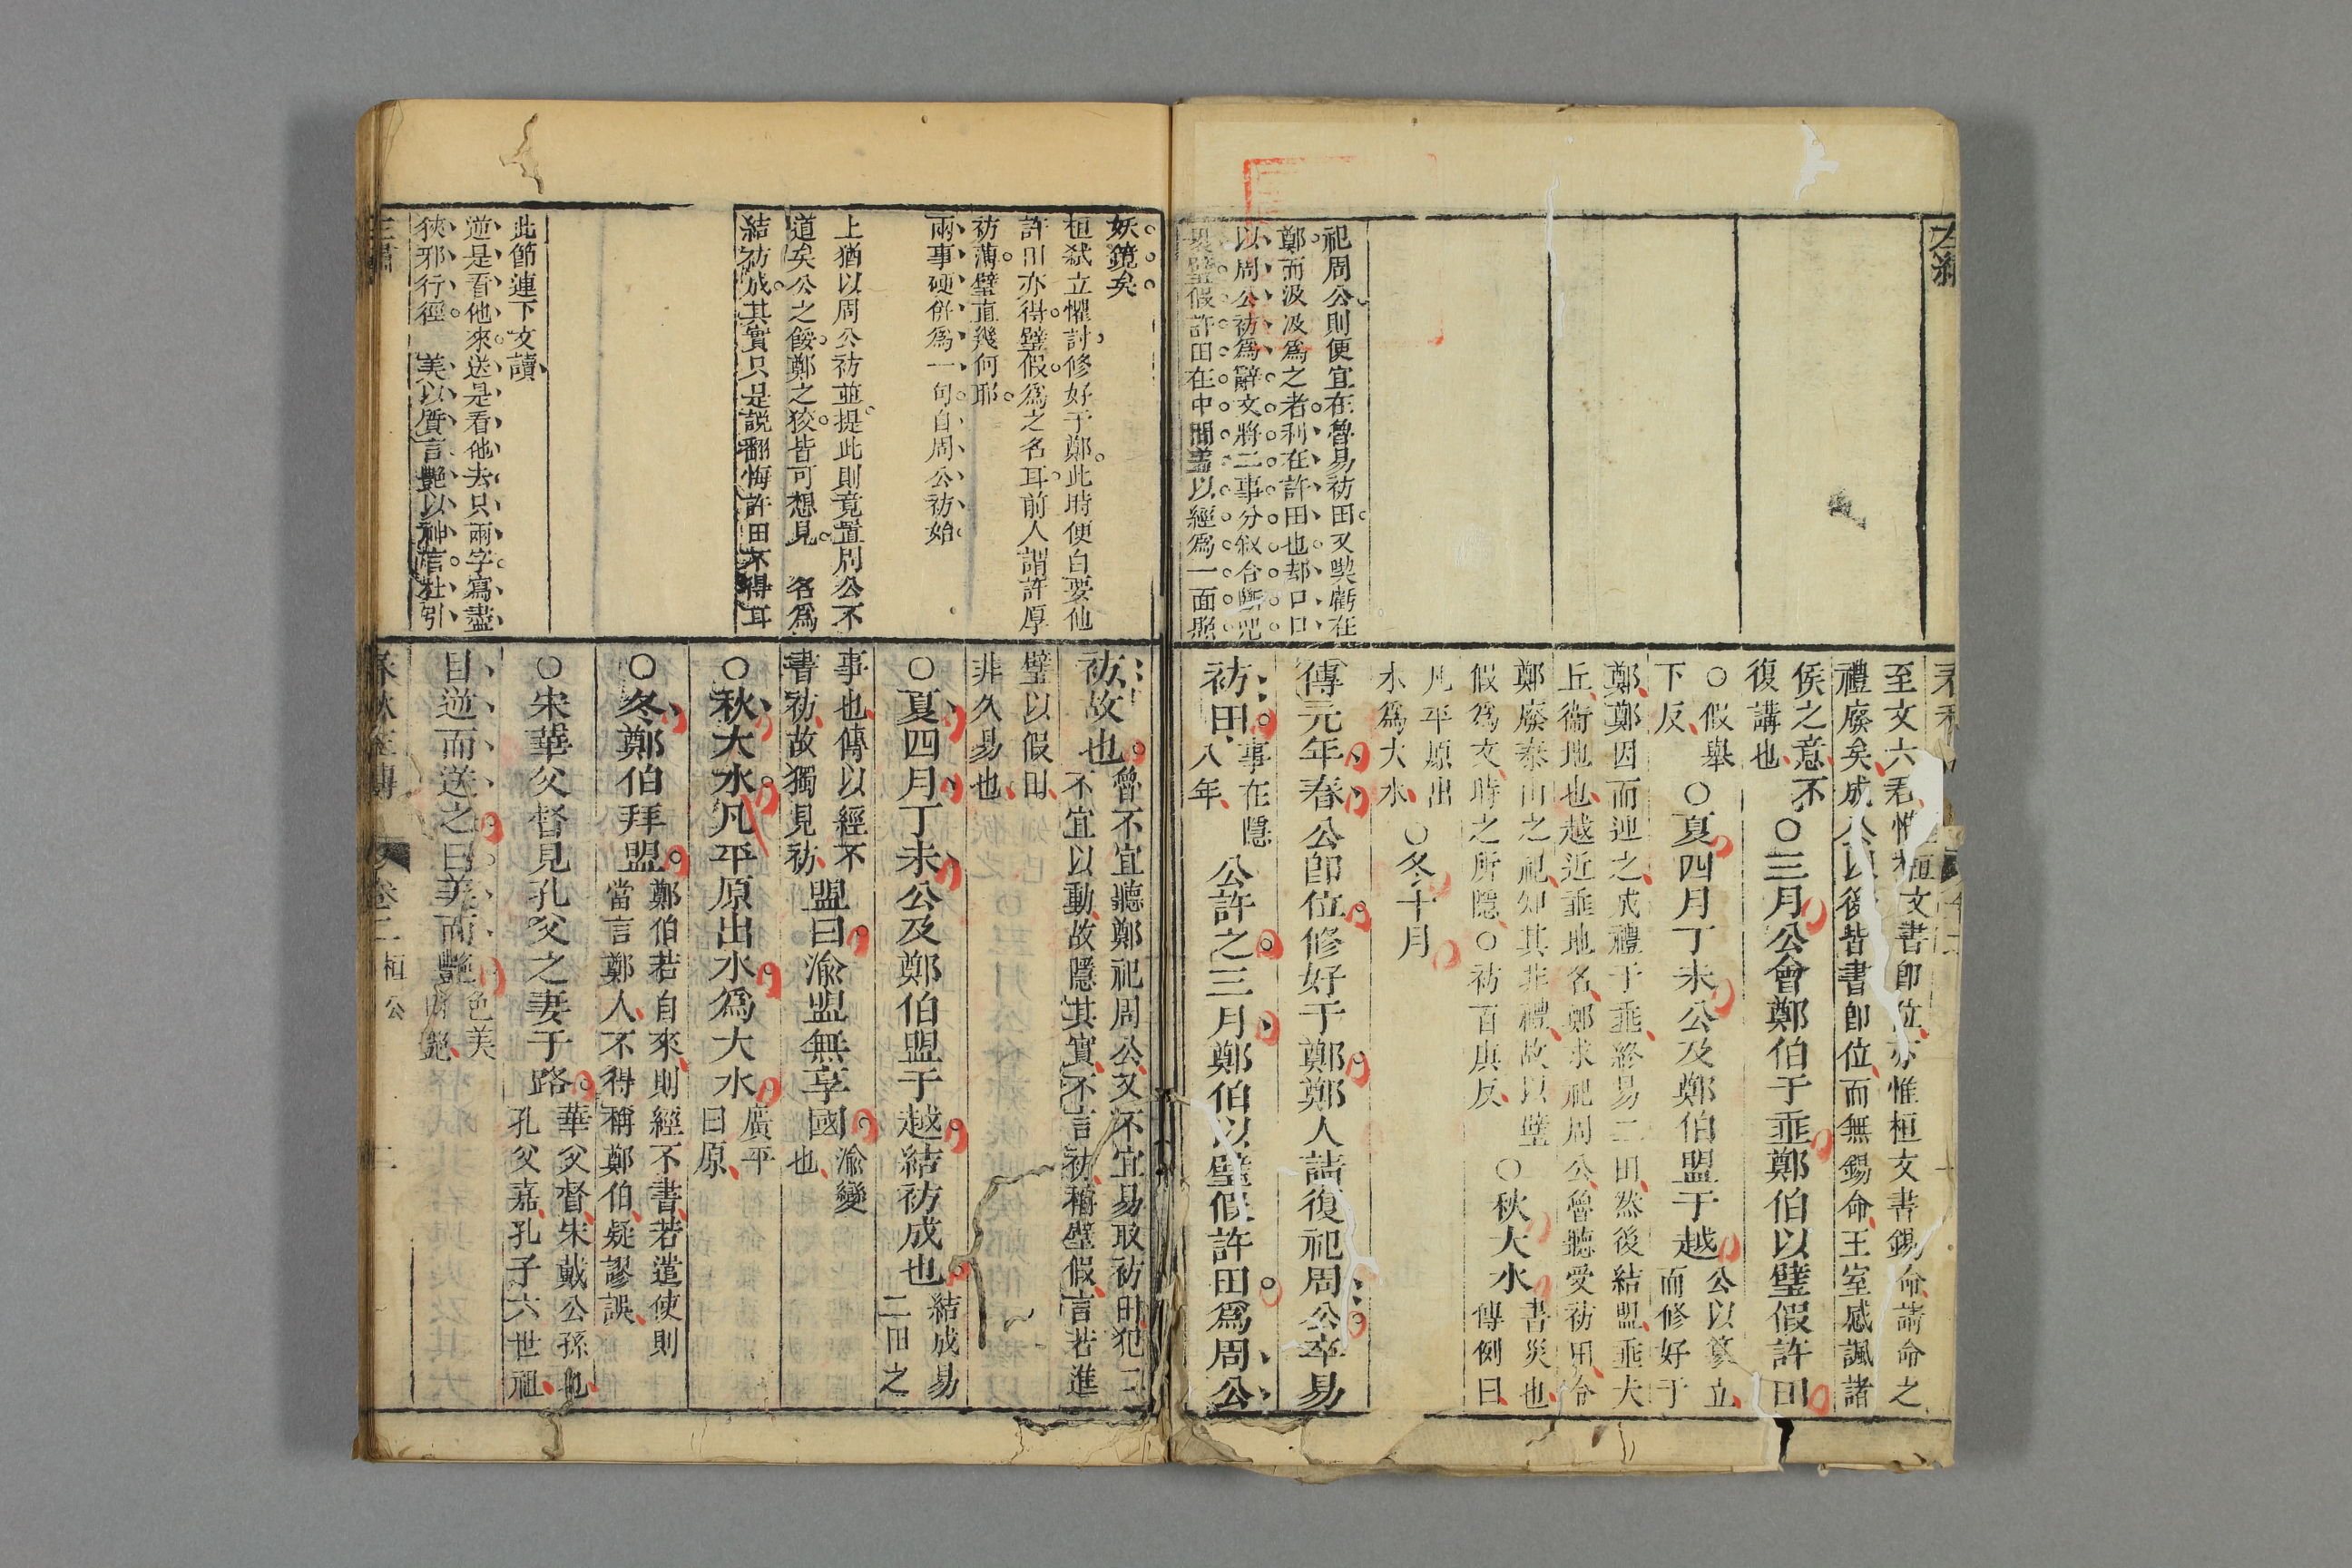 左繡
祀周公則便宜在魯易祊田又喫虧在
鄭而汲汲爲之者利在許田也却口口
以周公祊爲辭文將二事分叙合斷
璧假許田在中間盖以經爲一面照
至文六君惟桓文書即位亦惟桓文書錫命請命之
禮廢矣成公以後皆書即位而無錫命王室感諷諸
侯之意不
復講也
〇三月公會鄭伯于垂鄭伯以璧假許田
〇假舉
下反
〇夏四月丁未公及鄭伯盟于越
公以簒立
而修好于
鄭鄭因而迎之成禮于垂終易二田然後結盟垂犬
丘衞地也越近垂地名鄭求祀周公魯聽受祊田令
鄭廢泰山之祀知其非禮故以璧
假爲文時之所隱〇祊百庚反
〇秋大水
書災也
傳例曰
凡平原出
水爲大水
〇冬十月
傳元年春公卽位修好于鄭鄭人請復祀周公卒易
祊田
事在隱
八年
公許之三月鄭伯以璧假許田爲周公
妖鏡矣
桓弑立懼討修好于鄭此時便白要他
許田亦得璧假爲之名耳前人謂許厚
祊薄璧直幾何耶
兩事硬併爲一句自周公祊始
上猶以周公祊並提此則竟置周公不
道矣公之餒鄭之狡皆可想見 名爲
結祊成其實只是說翻悔許田不得耳
此節連下文讀
逆是看他來送是看他去只兩字寫盡
狹邪行徑 美以質言艶以神言杜引
祊故也
魯不宜聽鄭祀周公又不宜易取祊田犯二
不宜以動故隱其實不言祊稱璧假言若進
璧以假田
非久易也
〇夏四月丁未公及鄭伯盟于越結祊成也
結成易
二田之
事也傳以經不
書祊故獨見祊
盟曰渝盟無享國
渝變
也
〇秋大水凡平原出水爲大水
廣平
曰原
〇冬鄭伯拜盟
鄭伯若自來則經不書若遣使則
當言鄭人不得稱鄭伯疑謬誤
〇宋華父督見孔父之妻于路
華父督宋戴公孫也
孔父嘉孔子六世祖
目逆而送之曰美而艶
色美
曰艶
春秋左傳 卷二 桓公 二